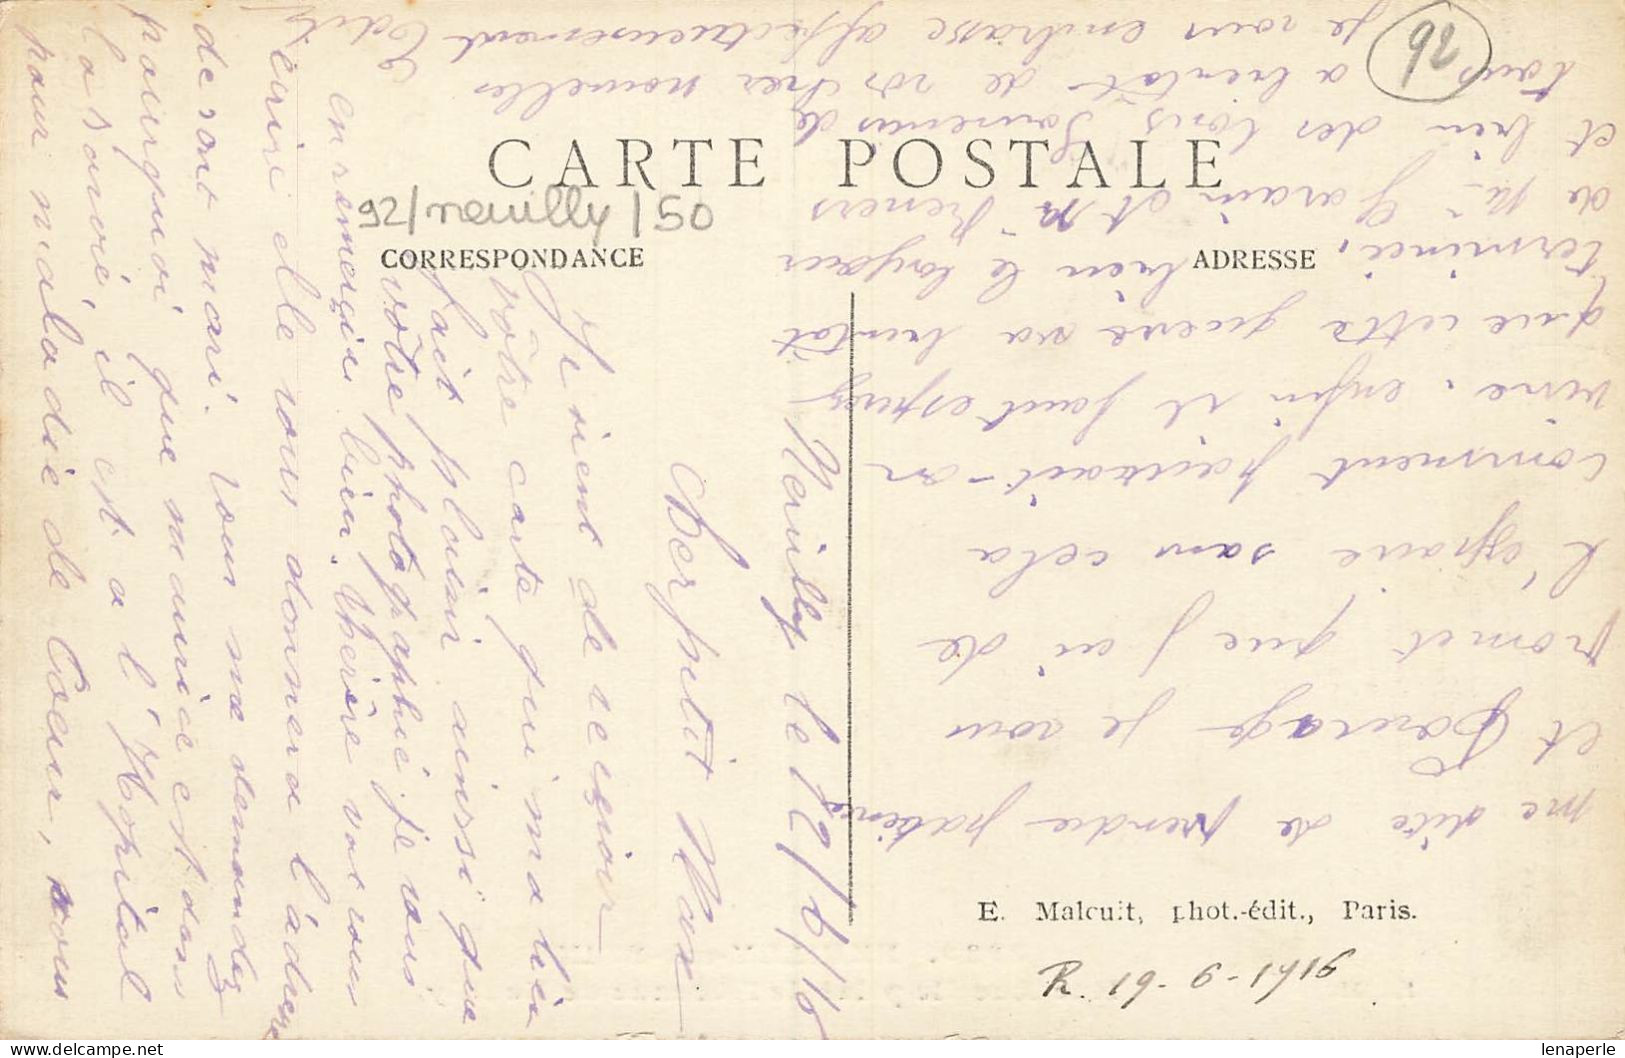 92
CARTE POSTALE
92/neuilly/50
CORRESPONDANCE
ADRESSE
Neuilly le 12/6/16
Cher petit Max
Je vient de reçevoir
vôtre carte qui m'a bien
fait plaisir ainssi que
vôtre photographie je vous
en remerçie bien. Thérèse vat vous
écrire elle vous donnera l'adresse
de sont mari. vous me demandez
pourquoi que maurice est dans
la santé, il est a l'Hopital
pour maladie de Coeur, vous
me dite de prendre patience
et Courage je vous
promet que j'ai de
l'espoire sans cela
comment pourrait-on
vivre. enfin il faut esperez
que cette guerre va bientôt
terminéi, bien le bonjour
de Mr et
et bien des bons Souvenirs de
tous a bientôt de vos cher nouvelles
Je vous embrasse affectueusement
E. Malcuit, phot.-édit., Paris.
R. 19-6-1916
lenaperle